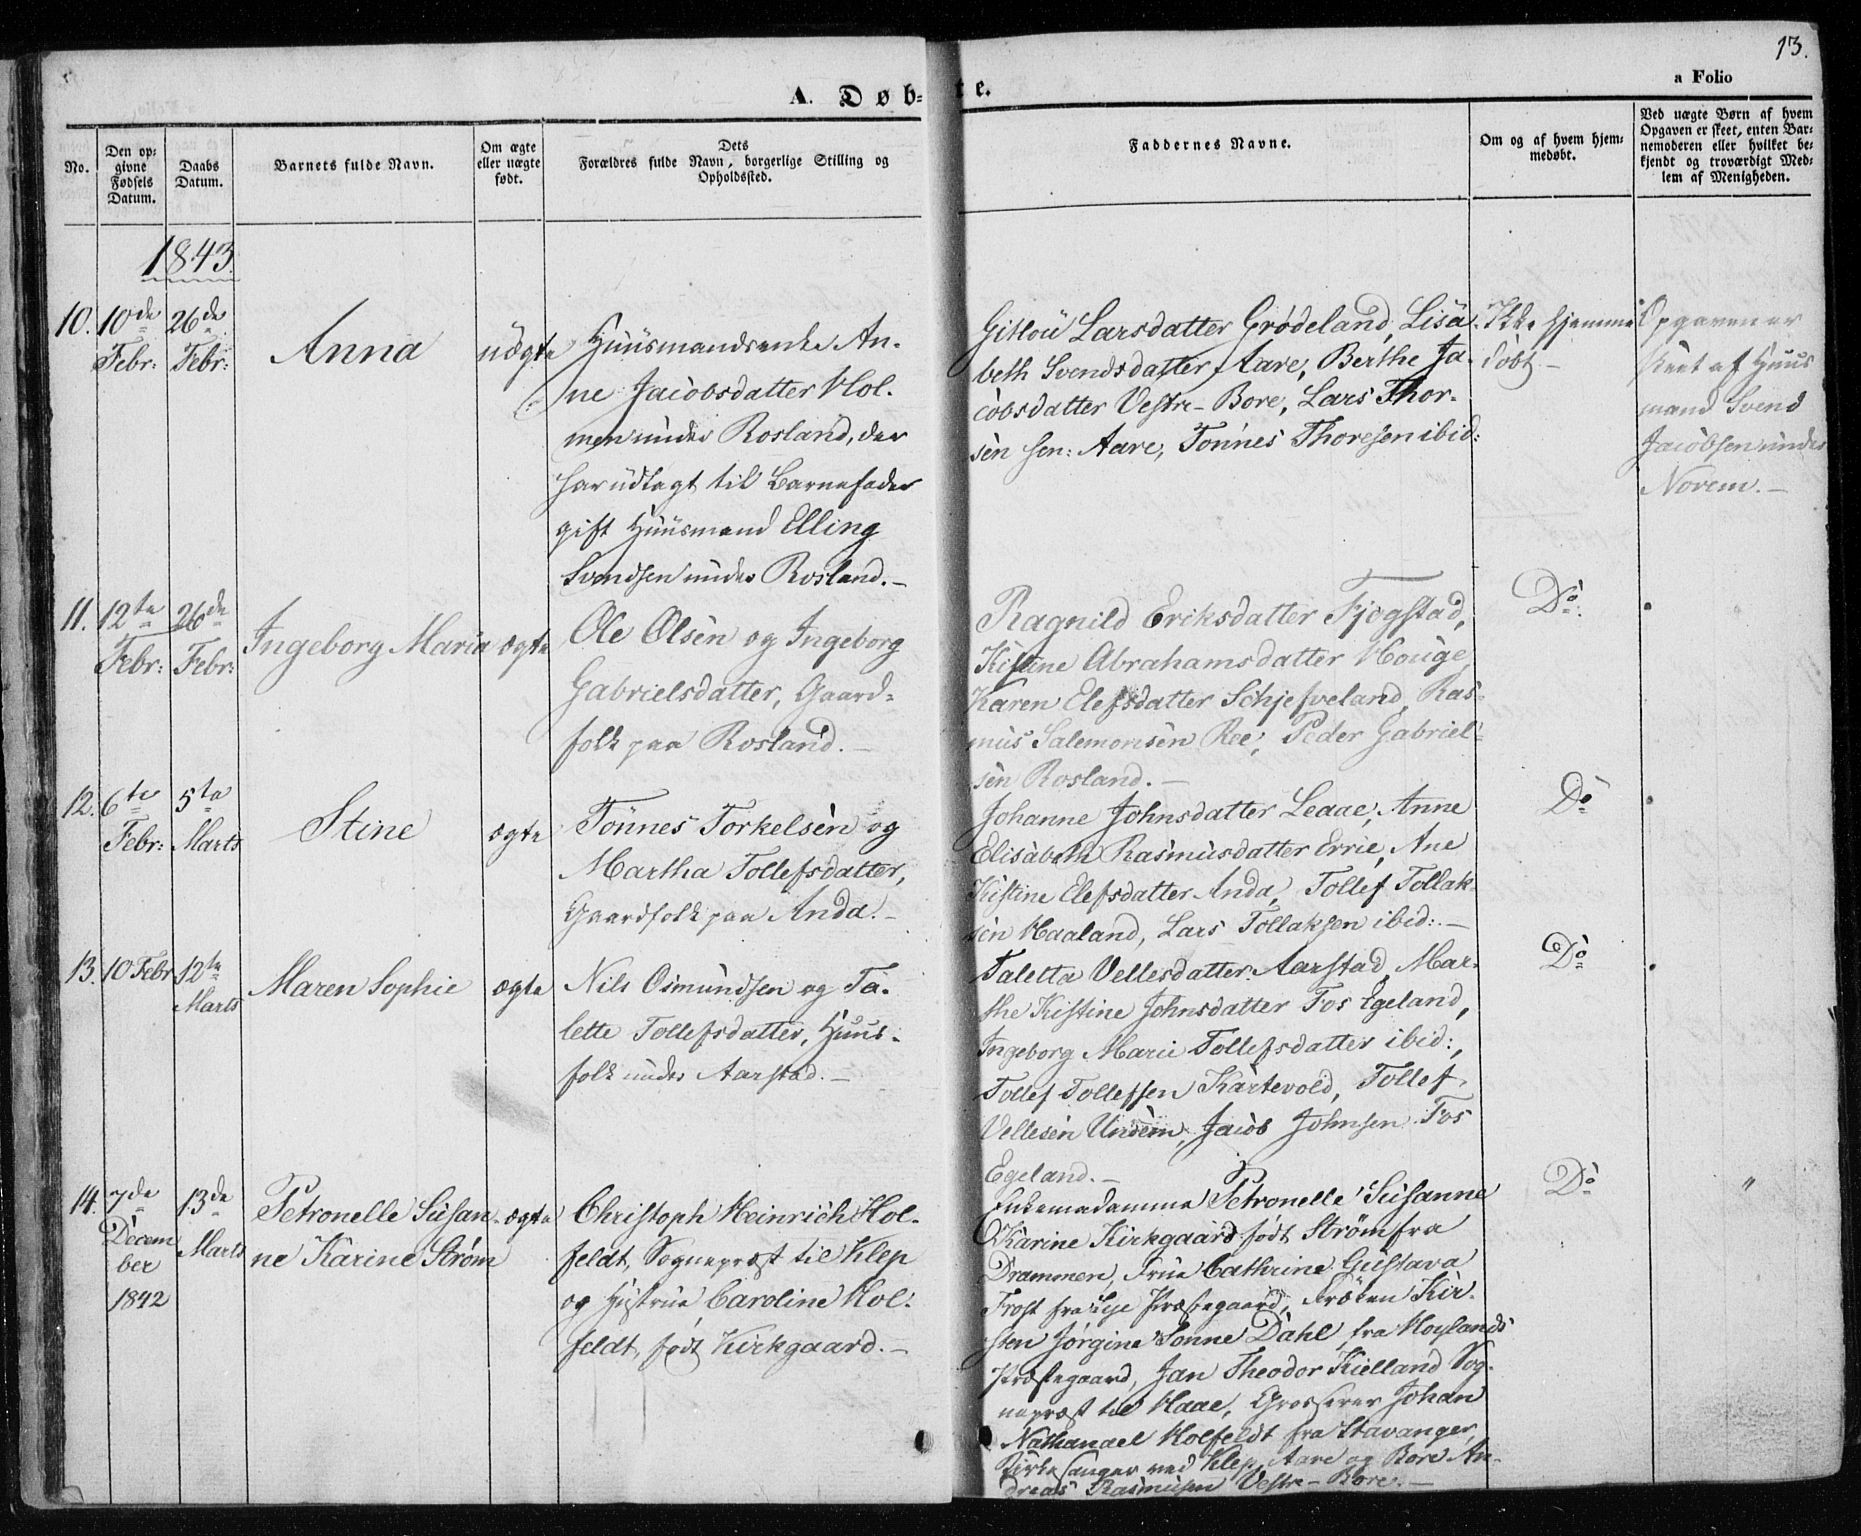 13.
A. Døb= te.
a Folio
No.
Den op=
givne
Fødsels
Datum.
Daabs
Datum.
Barnets fulde Navn.
Om ægte
eller uægte
født.
Dets
Forældres fulde Navn, borgerlige Stilling og
Opholdssted.
Faddernes Navne.
Om og af hvem hjem=
medøbt.
Ved uægte Børn af hvem
Opgaven er skeet, enten Bar=
nemoderen eller hvilket be=
kjendt og troværdigt Med=
lem af Menigheden.
1843.
10.
10de
Febr:
26de
Febr:
Anna
uægte
Huusmandsenke An-
ne Jacobsdatter Hol-
men under Rosland, der
har udlagt til Barnefader
gift Huusmand Elling
Svendsen under Rosland.-
Gitlou Larsdatter Grødeland, Lisa-
beth Svendsdatter Aare, Berthe Ja-
cobsdatter Vestre-Bore, Lars Thor-
sen sen: Aare, Tønnes Thoresen ibid:
Ikke hjemme
døbt.-
Opgaven er
skeet af Huus
mand Svend
Jacobsen under
Norem.-
11.
12te
Febr:
26de
Febr:
Ingeborg Maria
ægte
Ole Olsen og Ingeborg
Gabrielsdatter, Gaard=
folk paa Rosland.-
Ragnild Eriksdatter Fjogstad,
Kistine Abrahamsdatter Houge,
Karen Elefsdatter Schjefveland, Ras-
mus Salemonsen Ree, Peder Gabriel-
sen Rosland.-
Do.
12.
6te
Febr:
5te
Marts
Stine
ægte
Tønnes Torkelsen og
Martha Tollefsdatter,
Gaardfolk paa Anda.-
Johanne Johnsdatter Leaae, Anne
Elisabeth Rasmusdatter Errie, Ane
Kistine Elefsdatter Anda, Tollef Tollak-
sen Haaland, Lars Tollaksen ibid:.-
Do
13.
10 Febr
12te
Marts
Maren Sophie
ægte
Nils Osmundsen og Ta-
lette Tollefsdatter, Huus-
folk under Aarstad.-
Taletta Vellesdatter Aarstad, Mar-
the Kistine Johnsdatter Fos Egeland,
Ingeborg Marie Tollefsdatter ibid:,
Tollef Tollefsen Kartevold, Tollef
Vellesen Undem, Jacob Johnsen Fos
Egeland.-
Do
14.
7de
Decem
ber
1842
13de
Marts
Petronelle Susan-
ne Karine Strøm
ægte
Christoph Heinrich Hol-
feldt, Sognepræst til Klep
og Hustrue Caroline Hol-
feldt, født Kirkgaard.-
Enkemadamme Petronelle Susanne
Karine Kirkgaard født Strøm fra
Drammen, Frue Cathrine Gustava
Frost fra Lye Præstegaard, Frøken Kir-
sten Jørgine Sonne Dahl, fra Høylands
Præstegaard, Jan Theodor Kielland Sog-
nepræst til Haae, Grosserer Johan
Nathanael Holfeldt fra Stavanger,
Kirkesanger ved Klep, Aare og Bore An-
dreas Rasmusen Vestre-Bore.-
Do
"